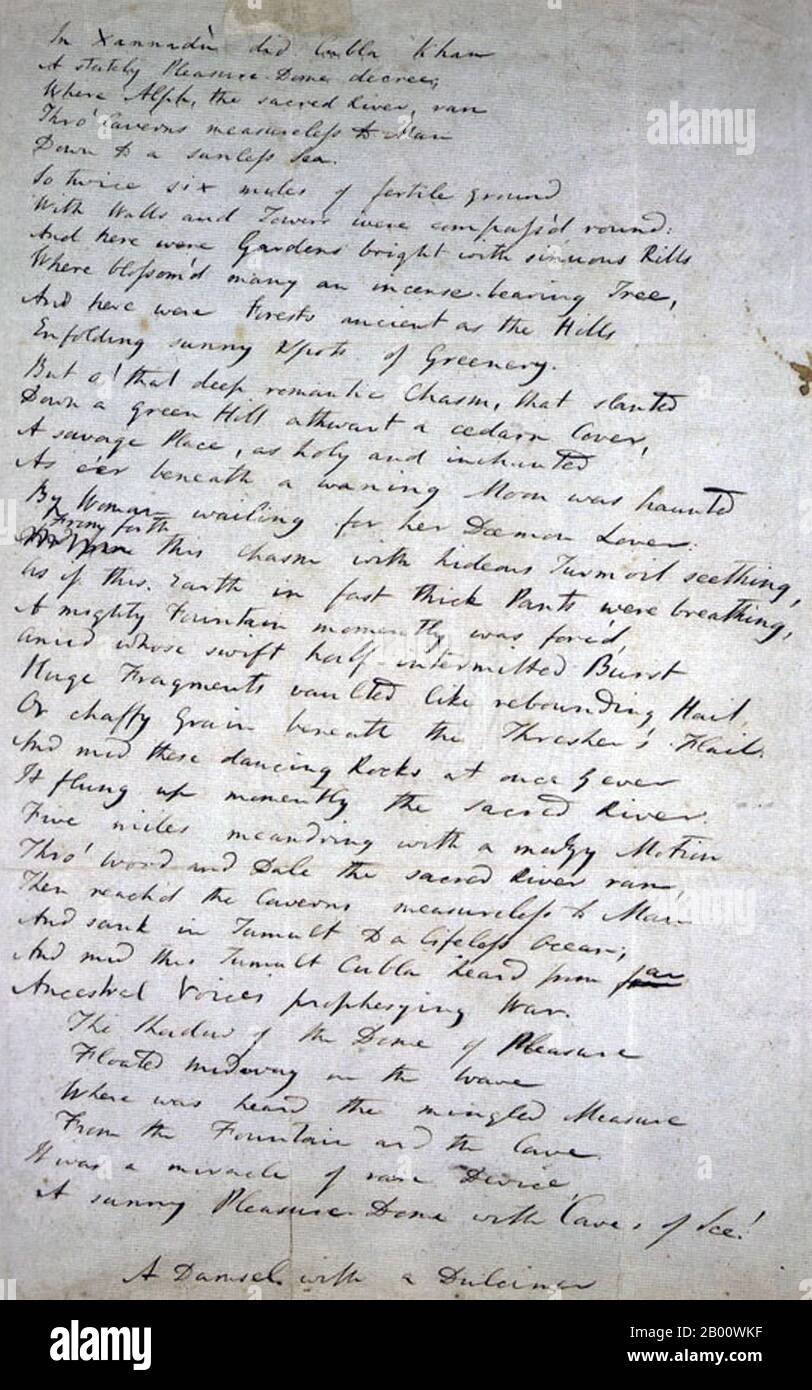 In Xannadù did Cubla Khan
A stately Pleasure-Dome decree;
Where Alph, the sacred River, ran
Thro' Caverns measureless to Man
Down to a sunless Sea.
So twice six miles of fertile ground
With Walls and Towers were compass'd round:
And here were Gardens bright with sinuous Rills
Where blossom'd many an incense-bearing Tree,
And here were Forests ancient as the Hills
Enfolding sunny Spots of Greenery.
But o! that deep romantic Chasm, that slanted
Down a green Hill athwart a cedarn Cover,
A savage Place, as holy and inchanted
As e'er beneath a waning Moon was haunted
By Woman wailing for her Dæmon Lover:
From forth this Chasm with hideous Turmoil seething,
As if this Earth in fast thick Pants were breathing,
A mighty Fountain momently was forc'd,
Amid whose swift half-intermitted Burst
Huge Fragments vaulted like rebounding Hail,
Or chaffy Grain beneath the Thresher's Flail.
And mid these dancing Rocks at once & ever
It flung up momently the sacred River.
Five miles meandring with a mazy Motion
Thro' Wood and Dale the sacred River ran,
Then reach'd the Caverns measureless to Man
And sank in Tumult to a lifeless Ocean;
And mid this Tumult Cubla heard from far
Ancestral Voices prophesying War.
The Shadow of the Dome of Pleasure
Floated midway on the Wave
Where was heard the mingled Measure
From the Fountain and the Cave.
It was a miracle of rare Device,
A sunny Pleasure-Dome with Caves of Ice!
A Damsel with a Dulcimer
alamy
alamy
alamy
Image ID: 2B00WKF
www.alamy.com